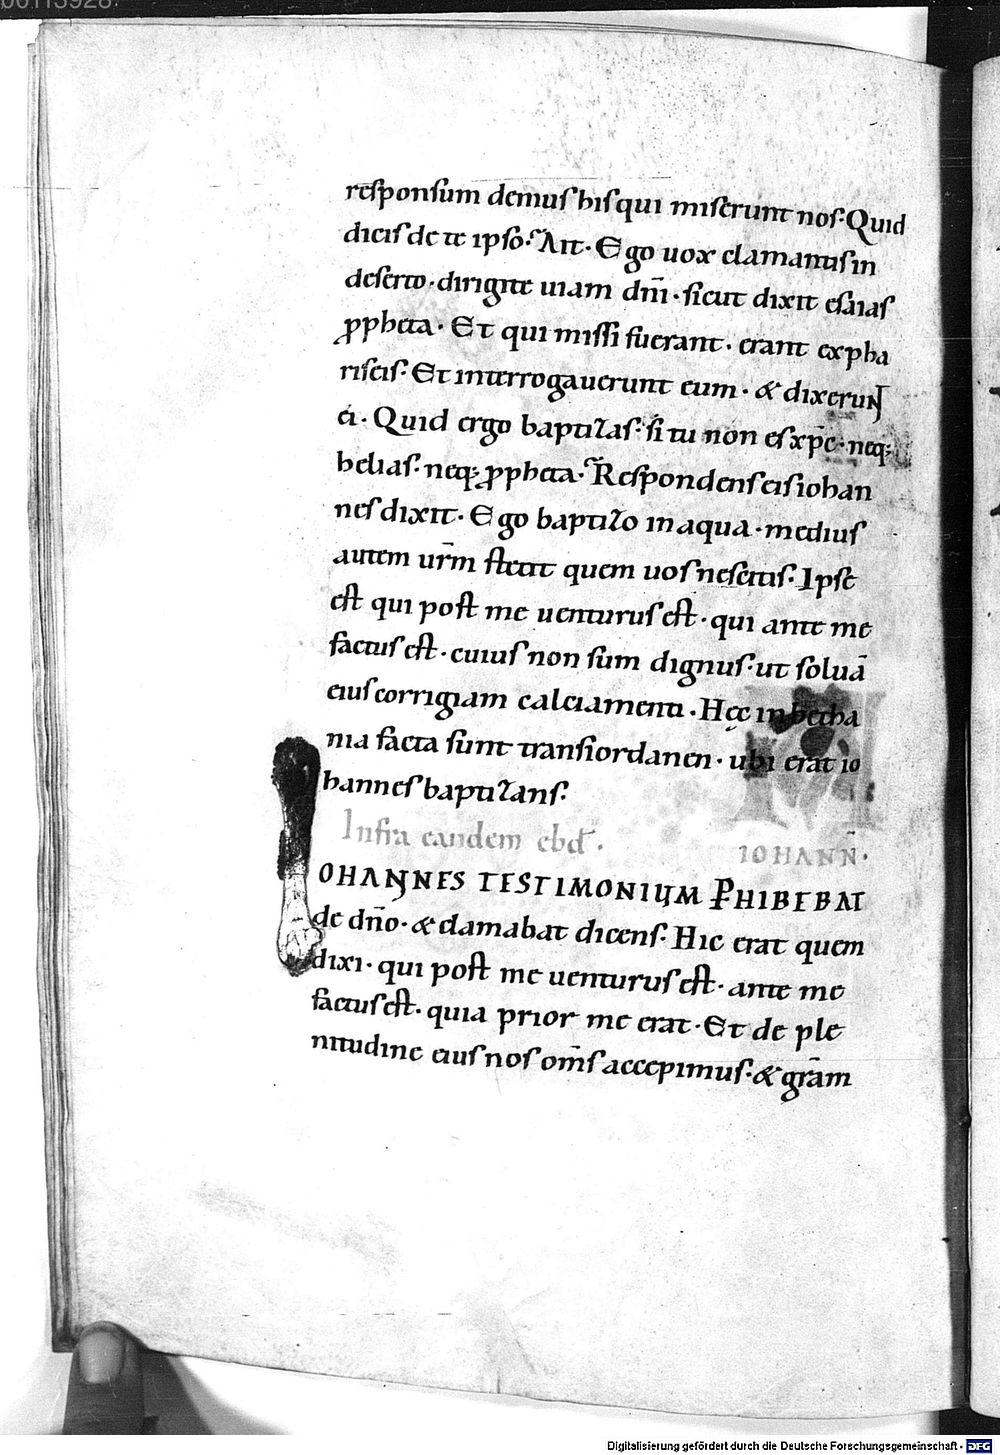 b00113928
responsum demus his qui miserunt nos· Quid
dicis de te ipso? Ait· Ego uox clamantis in
deserto· dirigite uiam dñi· sicut dixit esaias
ppheta· Et qui missi fuerant· erant ex pha
riseis· Et interrogauerunt eum· & dixerunt
ei· Quid ergo baptizas· si tu non es xp̄c· neq;
helias· neq; ppheta? Respondens eis iohan
nes dixit· Ego baptizo in aqua· medius
autem ur̄m stetit quem uos nescitis· Ipse
est qui post me uenturus est· qui ante me
factus est· cuius non sum dignus· ut soluā
eius corrigiam calciamenti· Hęc in betha
nia facta sunt trans iordanen· ubi erat io
hannes baptizans·
Infra eandem ebd̄· IOHANN̄·
IOHANNES TESTIMONIUM PHIBEBAT
de dño· & clamabat dicens· Hic erat quem
dixi· qui post me uenturus est· ante me
factus est· quia prior me erat· Et de ple
nitudine eius nos om̄s accepimus· & grām
Digitalisierung gefördert durch die Deutsche Forschungsgemeinschaft - DFG